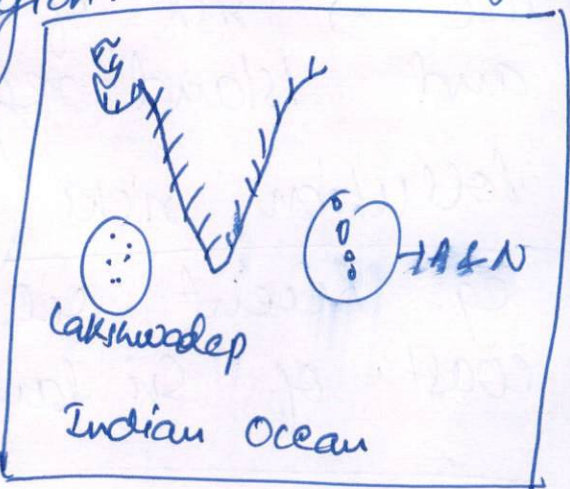 A & N
Lakshwadep
Indian Ocean